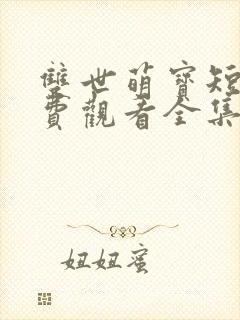 雙世萌寶短
費觀看全集
妞妞蜜